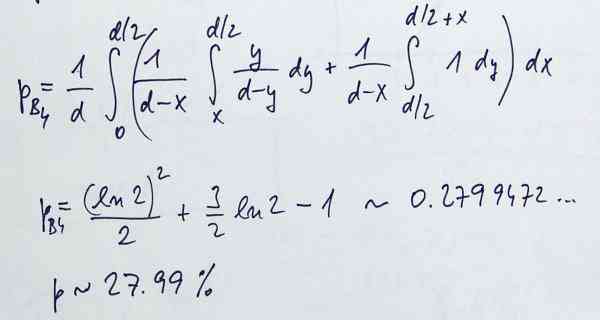 p_{B_4} = \frac{1}{d} \int_{0}^{d/2} \left( \frac{1}{d-x} \int_{x}^{d/2} \frac{y}{d-y} dy + \frac{1}{d-x} \int_{d/2}^{d/2+x} 1 dy \right) dx
p_{B4} = \frac{(ln 2)^2}{2} + \frac{3}{2} ln 2 - 1 ~ 0.2799472...
p ~ 27.99 %